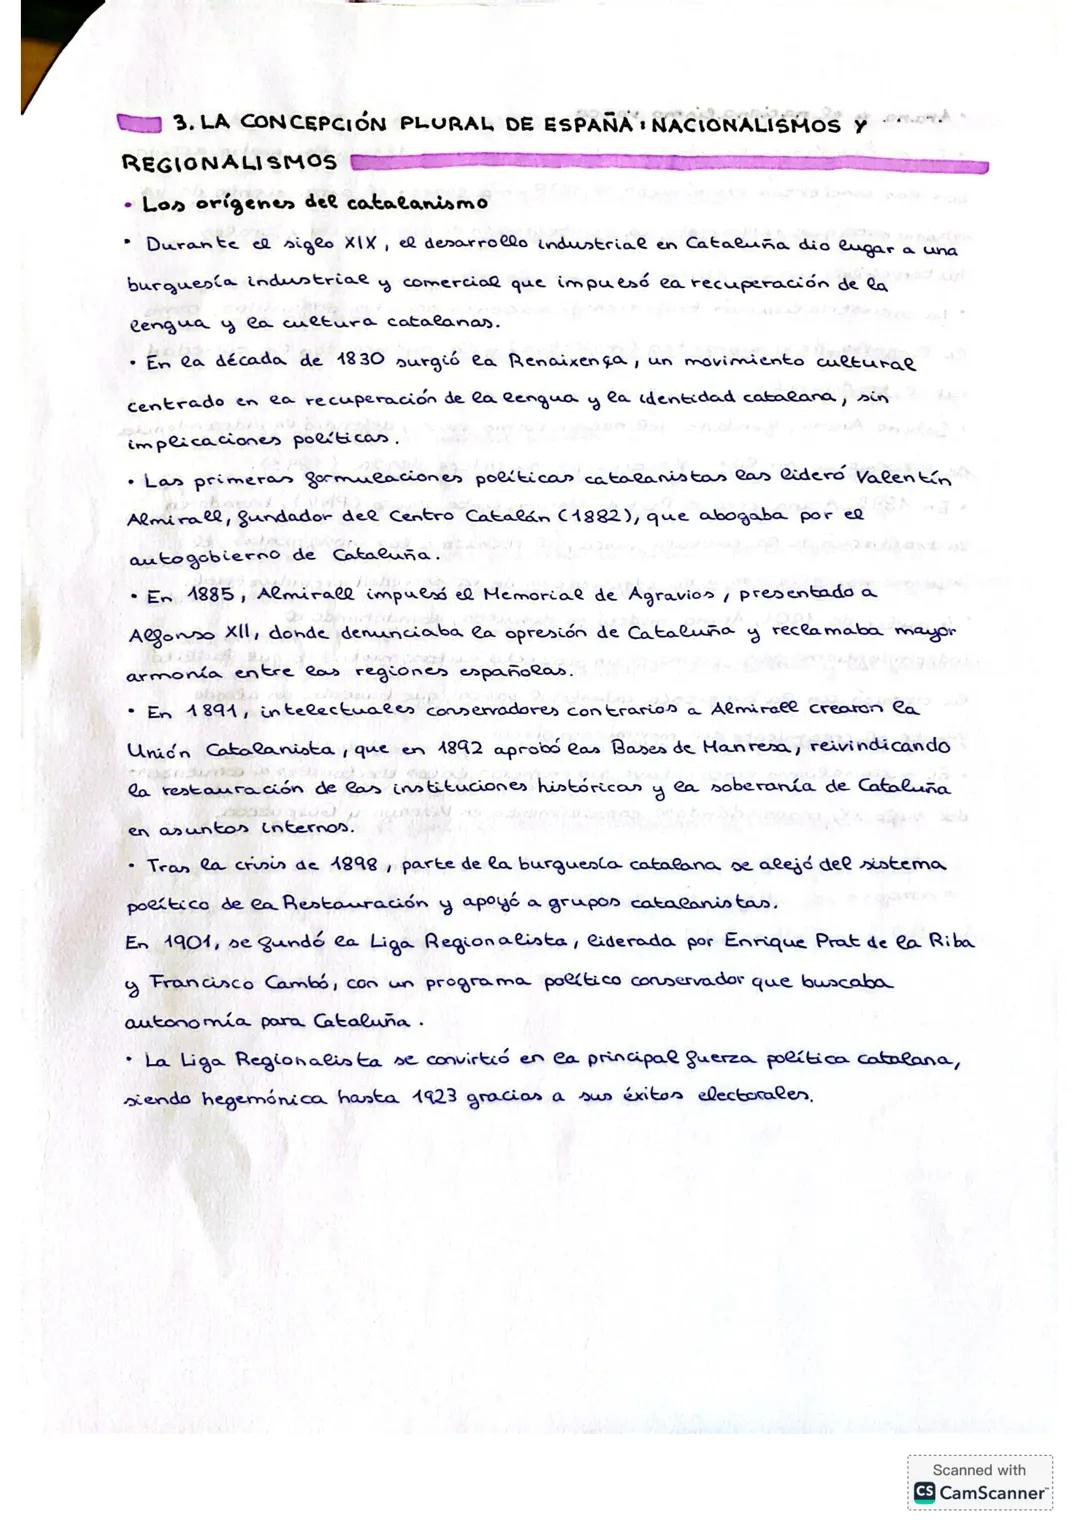 3. LA CONCEPCIÓN PLURAL DE ESPAÑA: NACIONALISMOS Y
REGIONALISMOS
• Los orígenes del catalanismo
• Durante el siglo XIX, el desarrollo industrial en Cataluña dio lugar a una
burguesía industrial y comercial que impulsó la recuperación de la
lengua y la cultura catalanas.
• En la década de 1830 surgió la Renaixença, un movimiento cultural
centrado en la recuperación de la lengua y la identidad catalana, sin
implicaciones políticas.
• Las primeras formulaciones políticas catalanistas las lideró Valentín
Almirall, fundador del Centro Catalán (1882), que abogaba por el
autogobierno de Cataluña.
• En 1885, Almirall impulsó el Memorial de Agravios, presentado a
Alfonso XII, donde denunciaba la opresión de Cataluña y reclamaba mayor
armonía entre las regiones españolas.
• En 1891, intelectuales conservadores contrarios a Almirall crearon la
Unión Catalanista, que en 1892 aprobó las Bases de Manresa, reivindicando
la restauración de las instituciones históricas y la soberanía de Cataluña
en asuntos internos.
• Tras la crisis de 1898, parte de la burguesía catalana se alejó del sistema
político de la Restauración y apoyó a grupos catalanistas.
En 1901, se fundó la Liga Regionalista, liderada por Enrique Prat de la Riba
y Francisco Cambó, con un programa político conservador que buscaba
autonomía para Cataluña.
• La Liga Regionalista se convirtió en la principal fuerza política catalana,
siendo hegemónica hasta 1923 gracias a sus éxitos electorales.
Scanned with
CS CamScanner